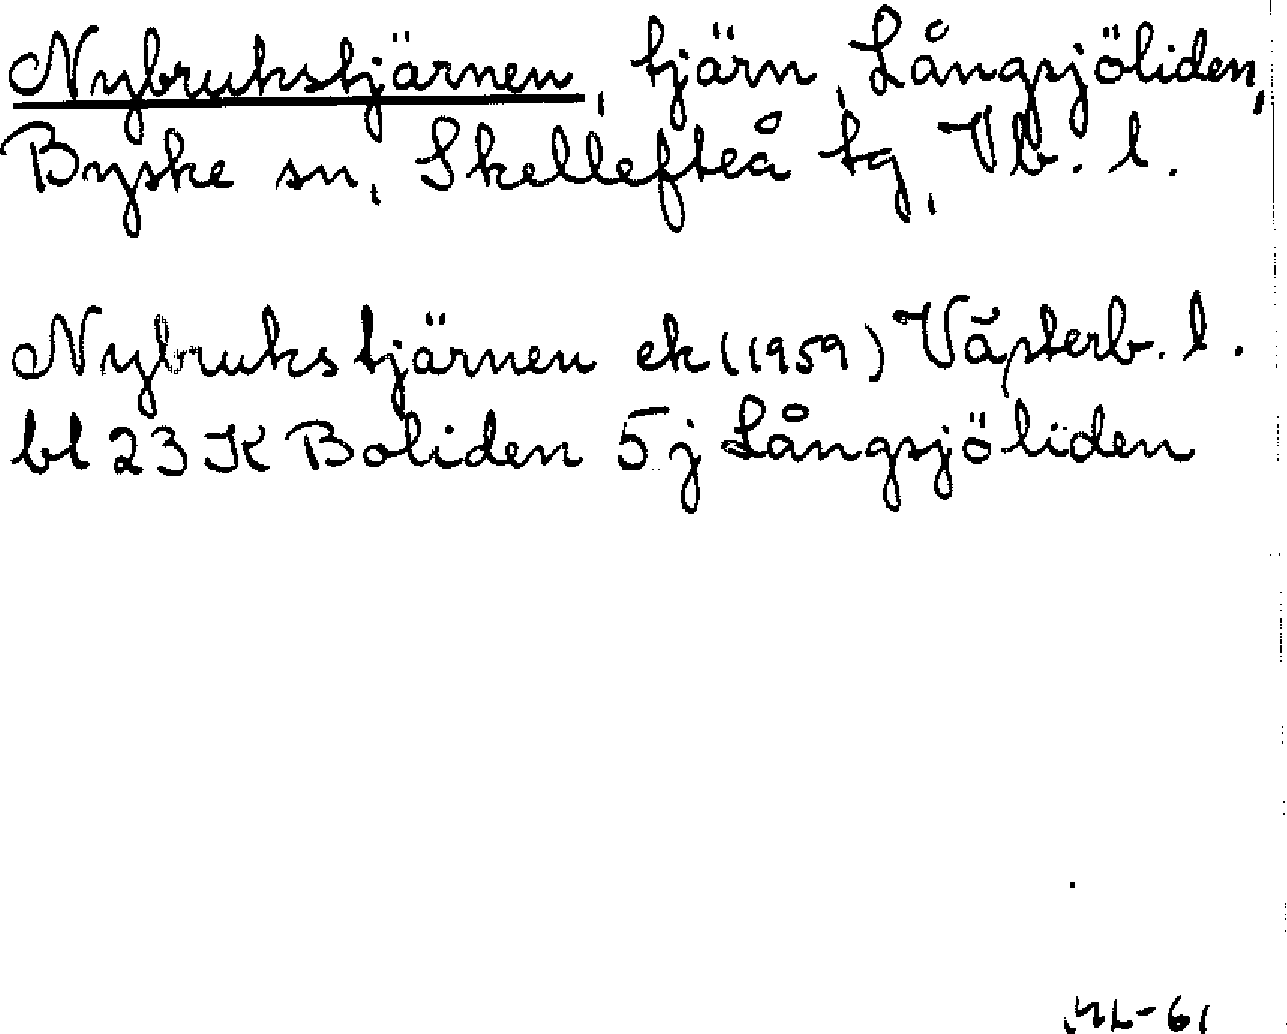 Nybrukstjärnen, tjärn, Långsjöliden,
Byske sn, Skellefteå tg, Vb. l.
Nybrukstjärnen ek (1959) Västerb. l.
bl 23 K Boliden 5 j Långsjöliden